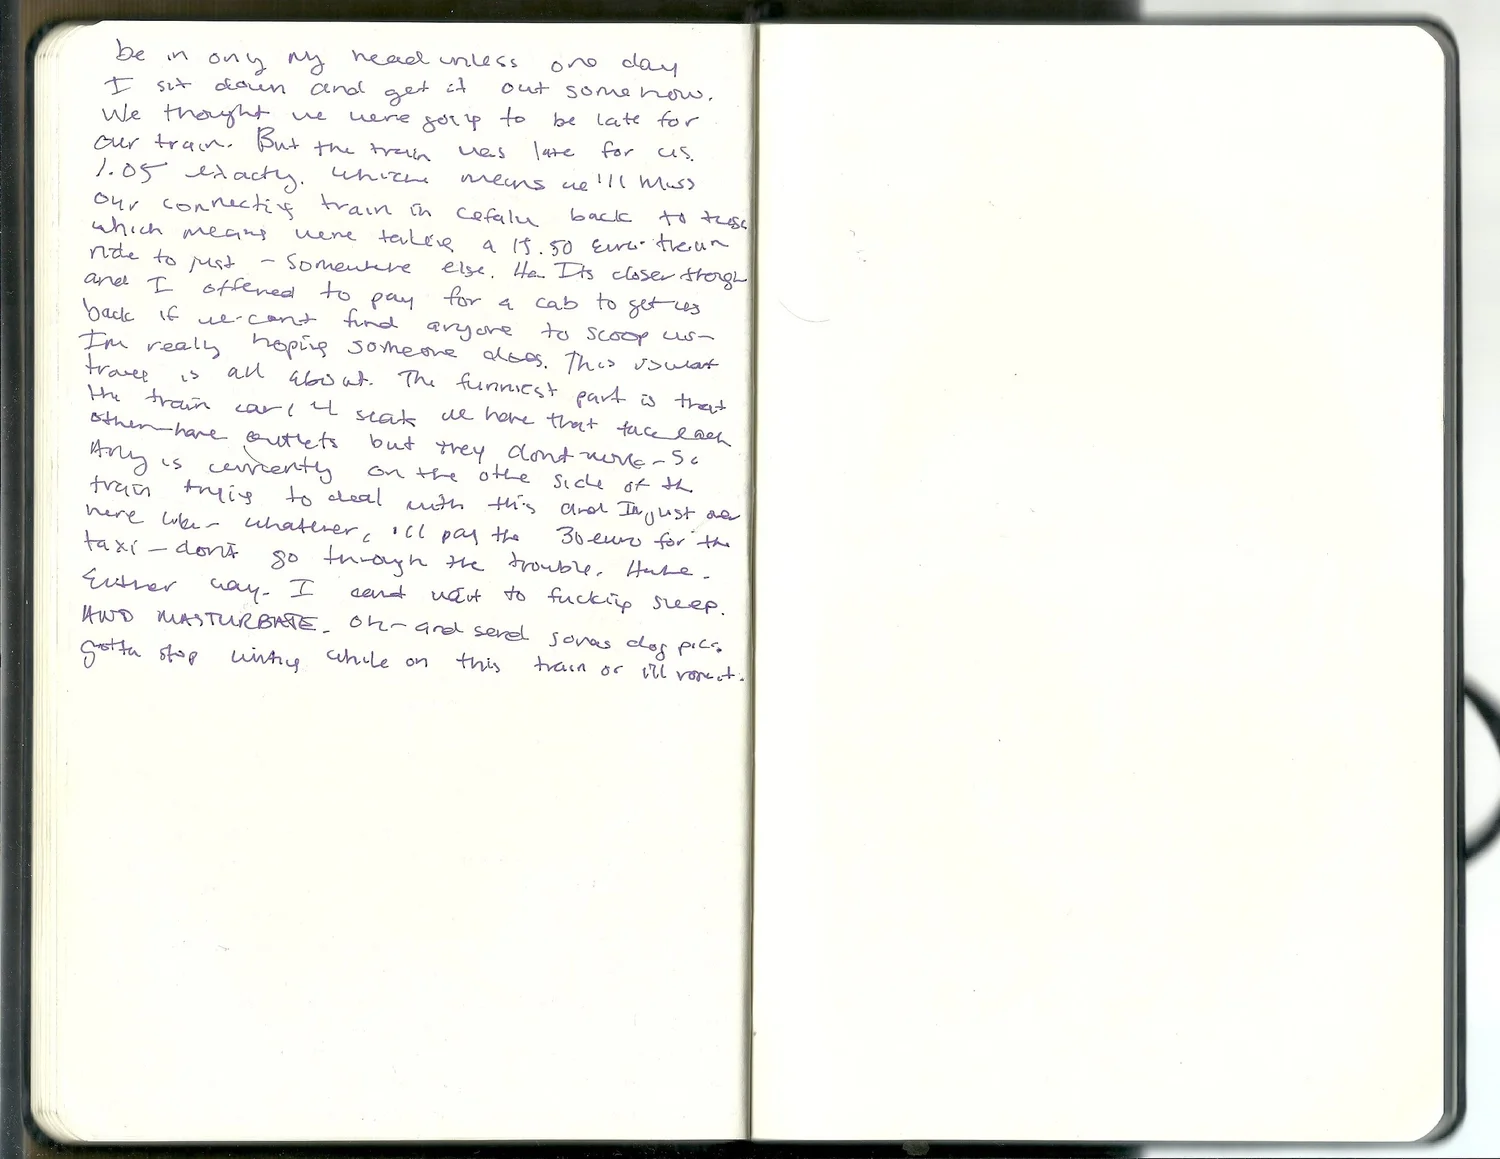 be in only my head unless one day
I sit down and get it out somehow.
We thought we were going to be late for
our train. But the train was late for us.
1.05 exactly. Which means we'll miss
our connecting train in cefalu back to
which means were taking a 15.50 euro train
ride to just – somewhere else. Ha. Its closer though
and I offered to pay for a cab to get us
back if we cant find anyone to scoop us –
Im really hoping someone does. This is what
travel is all about. The funniest part is that
the train car/4 seats we have that face each
other – have outlets but they dont work – So
is currently on the othe side of the
train trying to deal with this and Im just over
here like – whatever, i'll pay the 30 euro for the
taxi – dont go through the trouble. Haha.
Either way. I want to fucking sleep.
AND MASTURBATE. Oh – and send dog pics.
gotta stop writing while on this train or ill vomit.